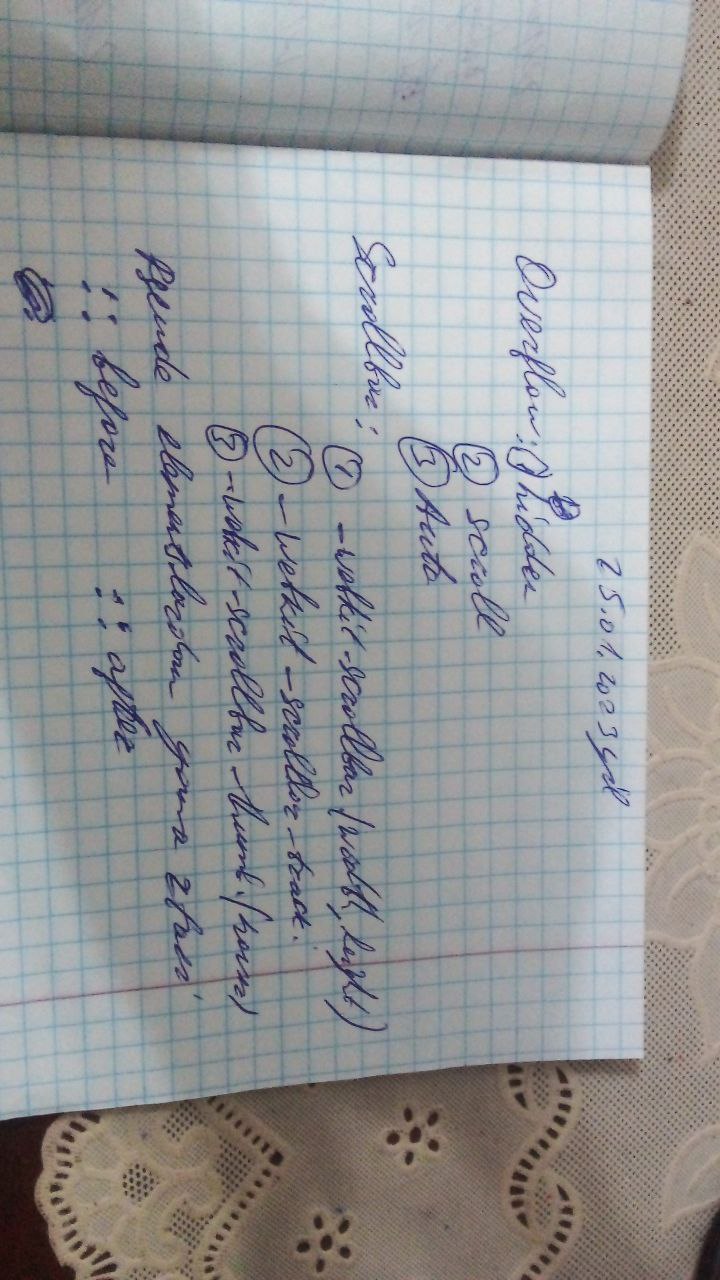 25.01.2023 yil
Overflow: ① hidden
② scroll
③ Auto
Scrollbar:
① -webkit-scrollbar (width, height)
② -webkit-scrollbar-track.
③ -webkit-scrollbar-thumb. (hover)
::before ::after